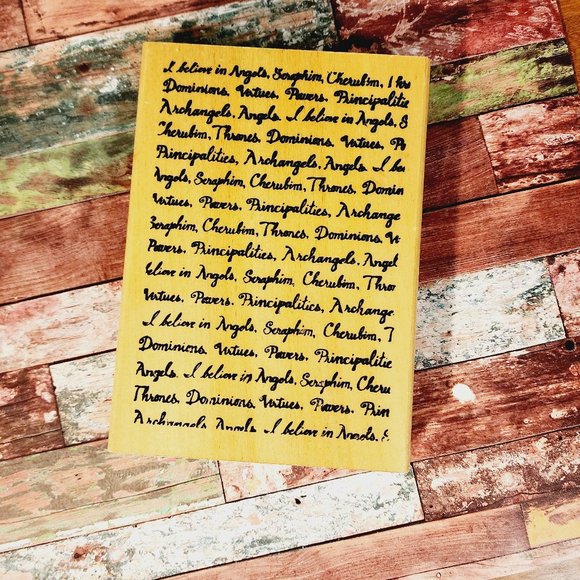 I believe in Angels, Seraphim, Cherubim,
Dominions, Virtues, Powers, Principalitie
Archangels, Angels. I believe in Angels, S
Cherubim, Thrones, Dominions, Virtues, Po
Principalities, Archangels, Angels. I be
Angels, Seraphim, Cherubim, Thrones, Domin
Virtues, Powers, Principalities, Archange
Seraphim, Cherubim, Thrones, Dominions, Vi
Powers, Principalities, Archangels, Angel
believe in Angels, Seraphim, Cherubim, Thro
Virtues, Powers, Principalities, Archange
I believe in Angels, Seraphim, Cherubim, T
Dominions, Virtues, Powers, Principalitie
Angels. I believe in Angels, Seraphim, Cheru
Thrones, Dominions, Virtues, Powers, Prin
Archangels, Angels. I believe in Angels, S